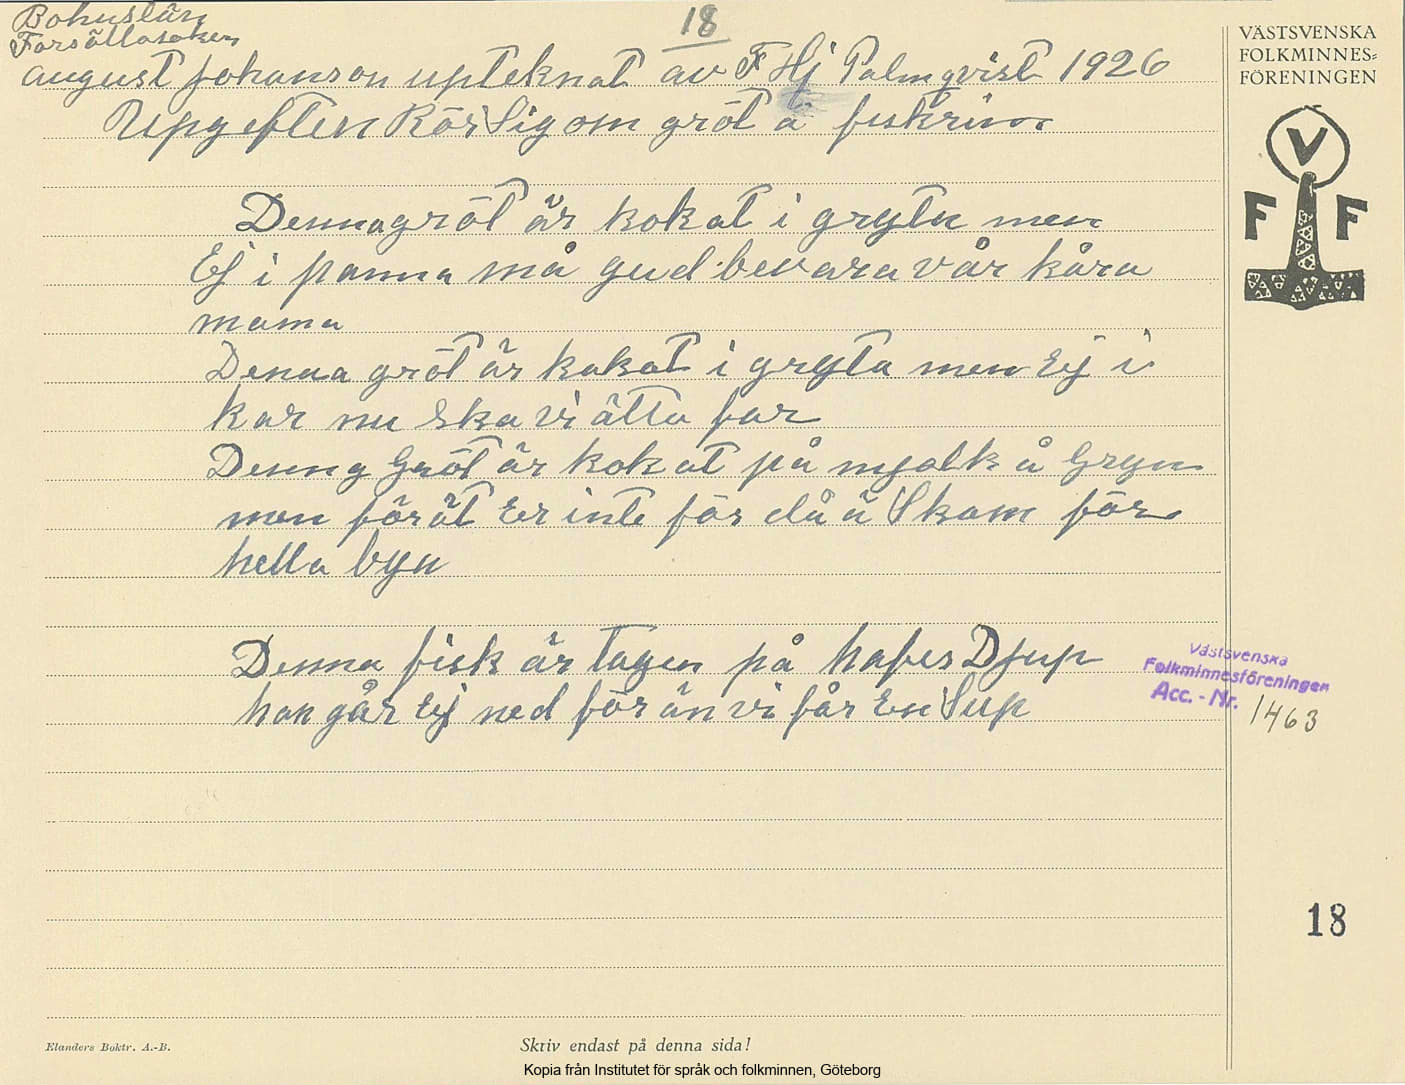 Bohuslän
18
Forsälla soken
August Johanson upteknat av F Hj Palmqvist 1926
Upgeften Rör Sig om gröt å fiskrim
Denna gröt är kokat i grytu men
Ej i panna må gud bevara vår kära
mama
Denna gröt är kokat i gryta men Ej i
kar nu ska vi ätta far
Denna Gröt är kokat på mjalk å Gryn
men förät Er inte för då ä Skam för
hella byn
Denna fisk är tagen på hafes Djup
han går Ej ned för än vi får En Sup
VÄSTSVENSKA
FOLKMINNES=
FÖRENINGEN
V
F F
Västsvenska
Folkminnesföreningen
Acc. - Nr. 1463
18
Elanders Boktr. A.-B.
Skriv endast på denna sida!
Kopia från Institutet för språk och folkminnen, Göteborg